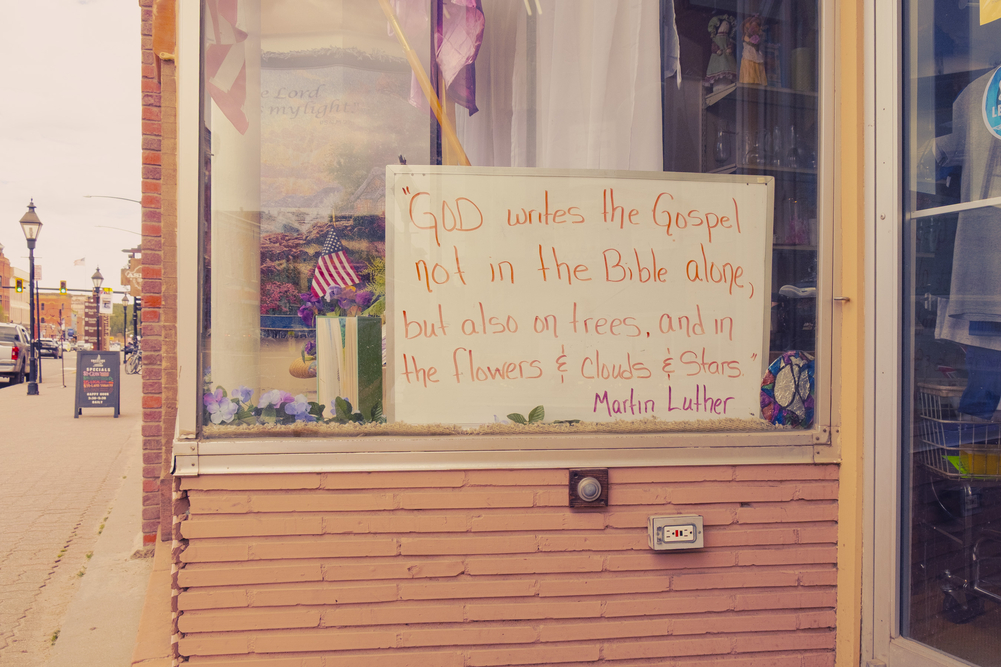 e Lord
is my light!
"GOD writes the Gospel
not in the Bible alone,
but also on trees, and in
the flowers & Clouds & Stars."
Martin Luther
SPECIALS